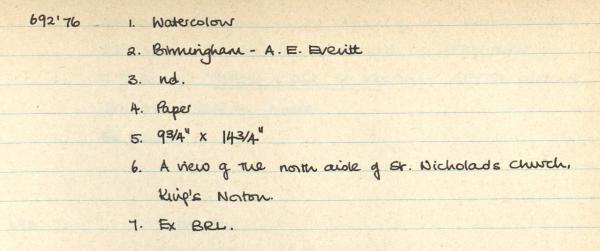 692'76 1. Watercolour
2. Birmingham - A. E. Everitt
3. nd.
4. Paper
5. 9 3/4" x 14 3/4"
6. A view of the north aisle of St. Nicholads church,
King's Norton.
7. Ex BRL.